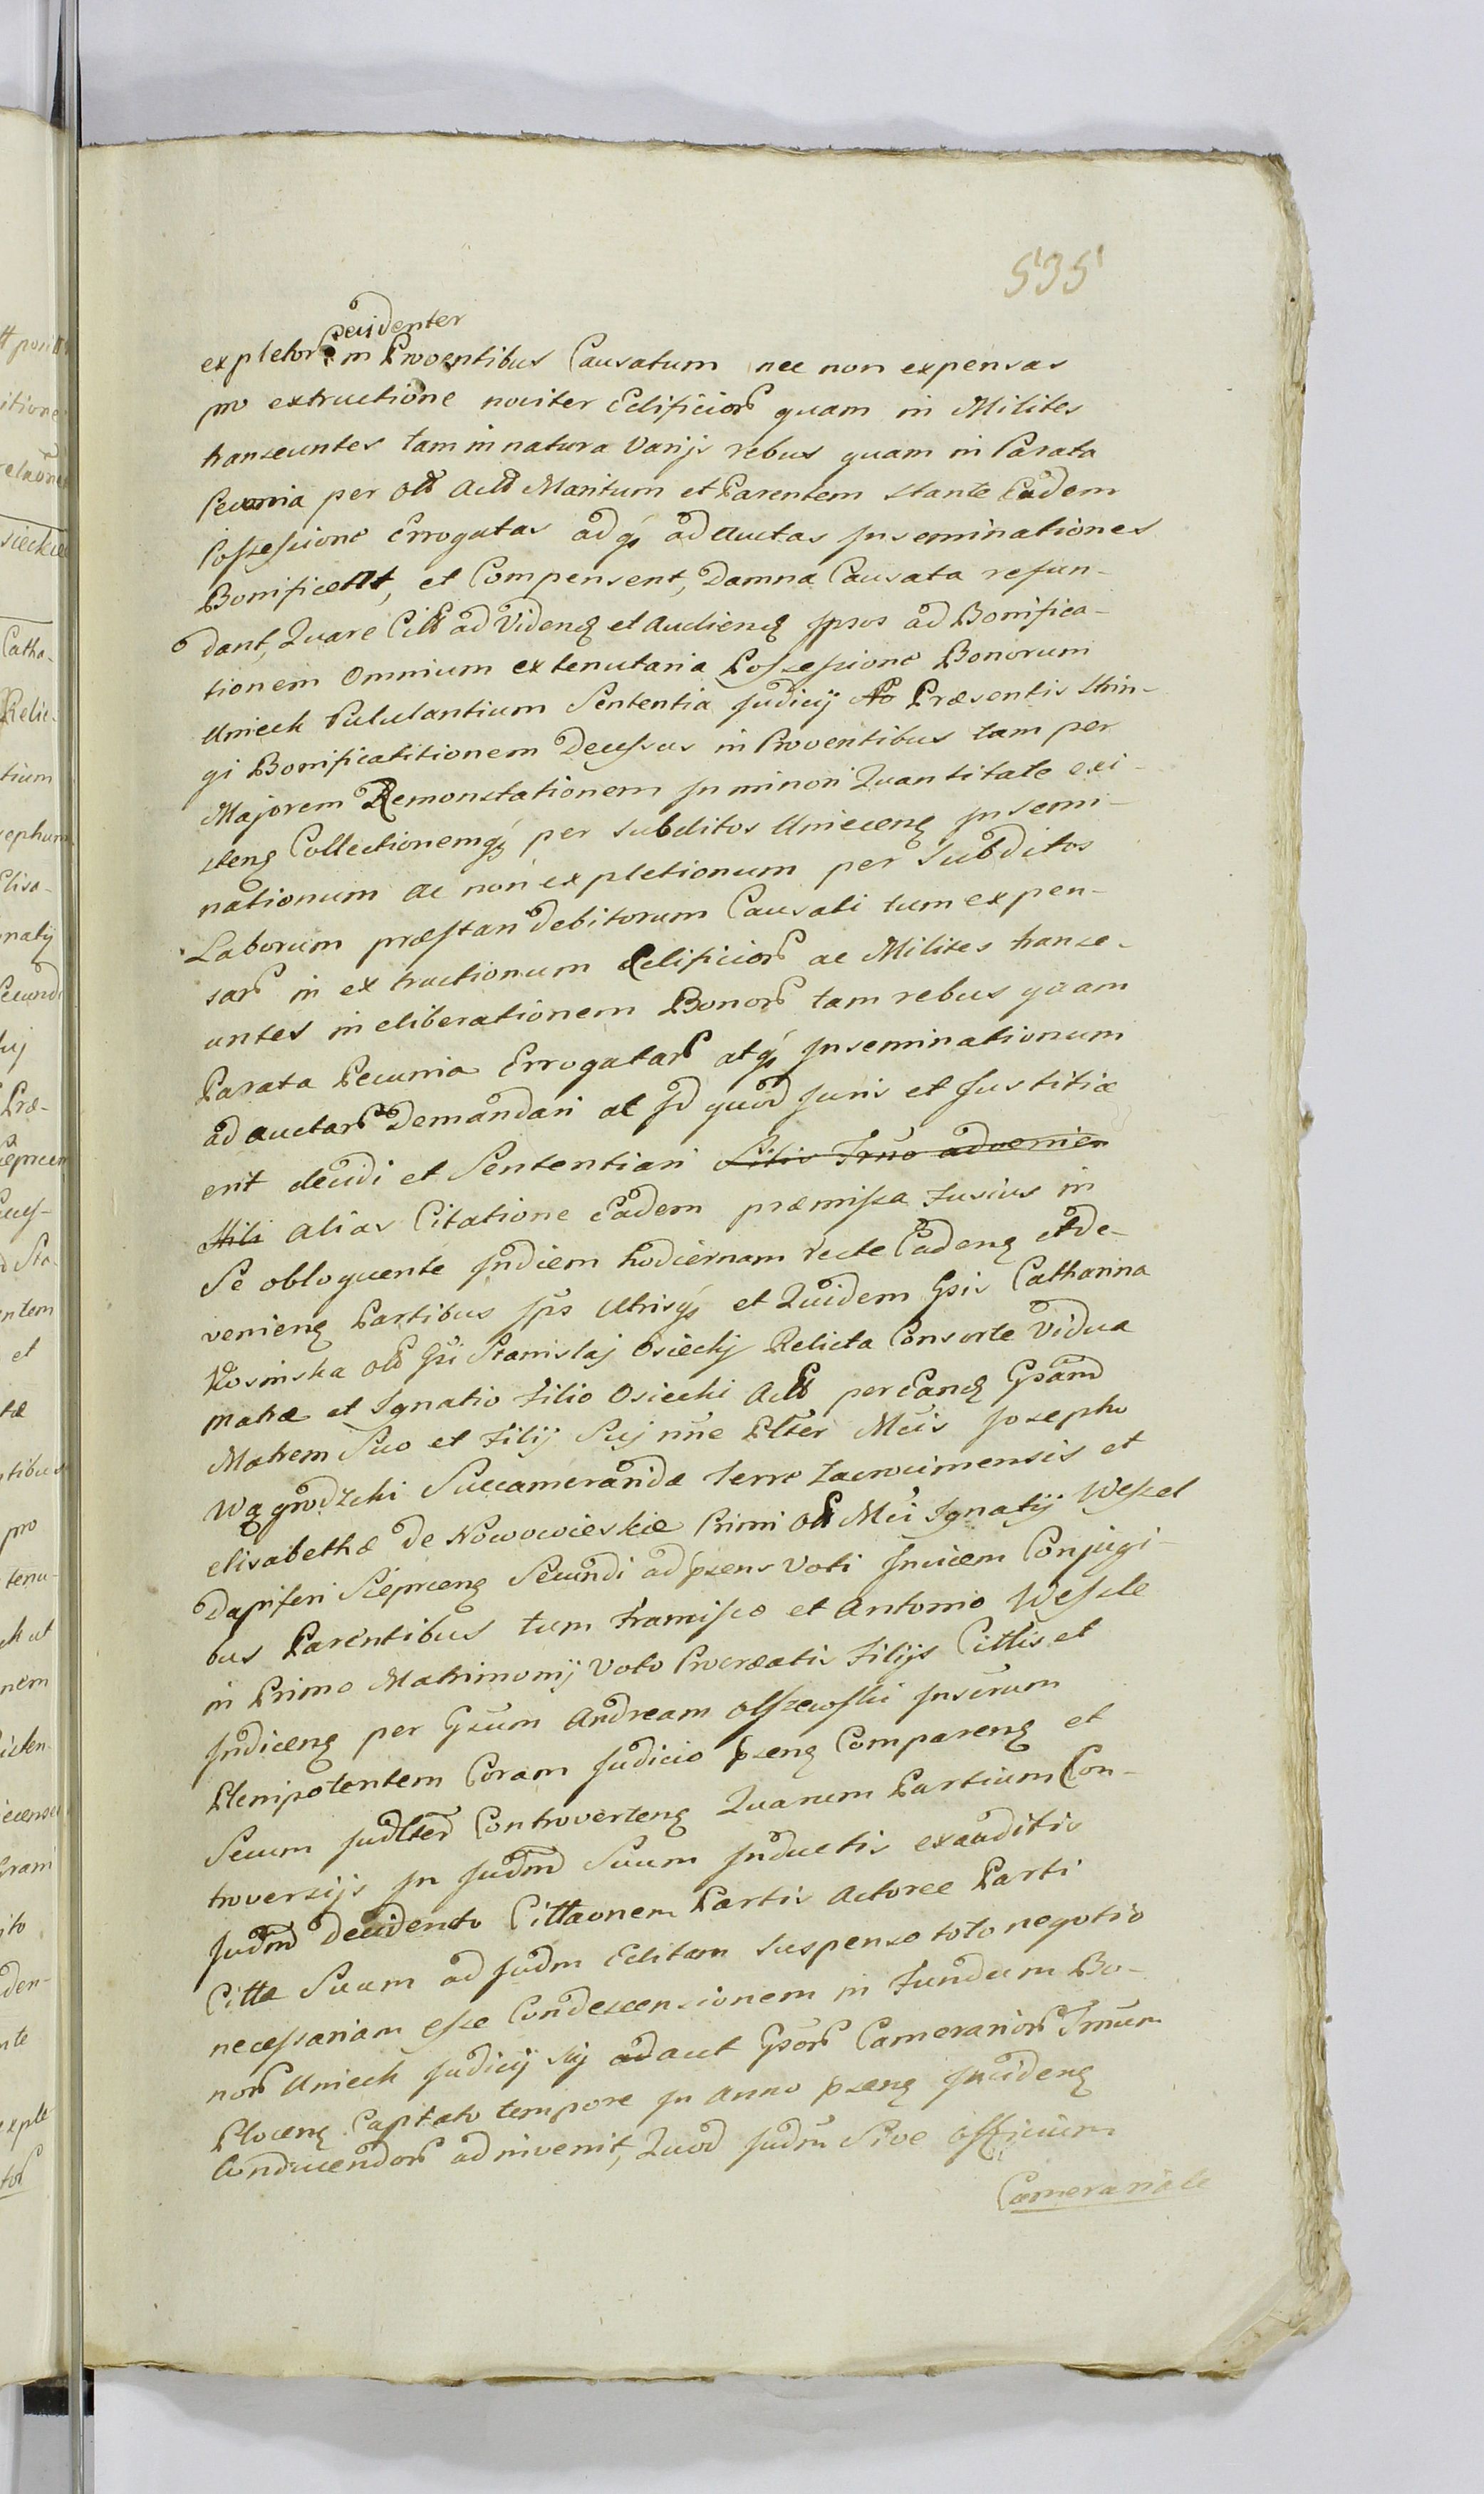 535
evidenter
expletor in Proventibus Causatum nec non expensas
pro extructione noviter Edificior quam in Milites
transeuntes tam in natura Varijs rebus quam in Parata
Pecunia per Maritum et Parentem stante Eadem
Possessione Errogatas adq adauctas Inseminationes
Bonificent, et Compensent, Damna Causata refun-
dant, Quare Citt ad Videng et Audieng Ipsos ad Bonifica-
tionem Omnium ex tenutaria Possessione Bonorum
Unieck Pululantium Sententia Judicij Præsentis strin-
gi Bonificatitionem Decessus in Proventibus tam per
Majorem Remonstationem In minori Quantitate exi-
steng Collectionemq per subditos Unieceng Insemi-
nationum ac non expletionum per Subditos
Laborum præstan debitorum Causati tum expen-
sar in extructionum Edificior ac Milites transe-
untes in eliberationem Bonor tam rebus quam
Parata Pecunia Errogatar atq Inseminationum
adauctar Demandari at Id quod Juris et Justitiæ
erit decidi et Sententiari Litis Trno advenien
Stili alias Citatione Eadem præmissa fusius in
Se obloquente Indiem hodiernam recte Cadeng et de-
venieng Partibus Ips Utrisq et Quidem Gsis Catharina
Kosinska Gsi Stanislaj Osieckj Relicta Consorte Vidua
matre et Ignatio Filio Osiecki per Eandg Gsam
Matrem Suo et Filij Suj nne Mcis Josepho
Wągrodzki Succameranidæ Terre Zacrocimensis et
Elisabethæ de Nowowieskie Primi Mci Ignatij Wessel
Dapiferi Sieprceng Secundi ad psens Voti Invicem Conjugi-
bus Parentibus tum Francisco et Antonio Wessele
in Primo Matrimonij Voto Procreatis Filijs Cittis et
Indiceng per Gsum Andream Olszewski Insrum
Plenipotentem Coram Judicio pseng Compareng et
Secum Judlter Controverteng Quarum Partium Con-
troversijs In Judm Suum Inductis exauditis
Judm Decidendo Cittaonem Partis Actoree Parti
Cittæ Suam ad Judm Editam suspenso toto negotio
necessariam esse Condescensionem in Fundum Bo-
nor Unieck Judicij sij adact Gsor Camerarior Trnum
Ploceng Captato tempore In Anno pseng Incideng
Conducendor adinvenit, Quod Judm Sive officium
Camerariale